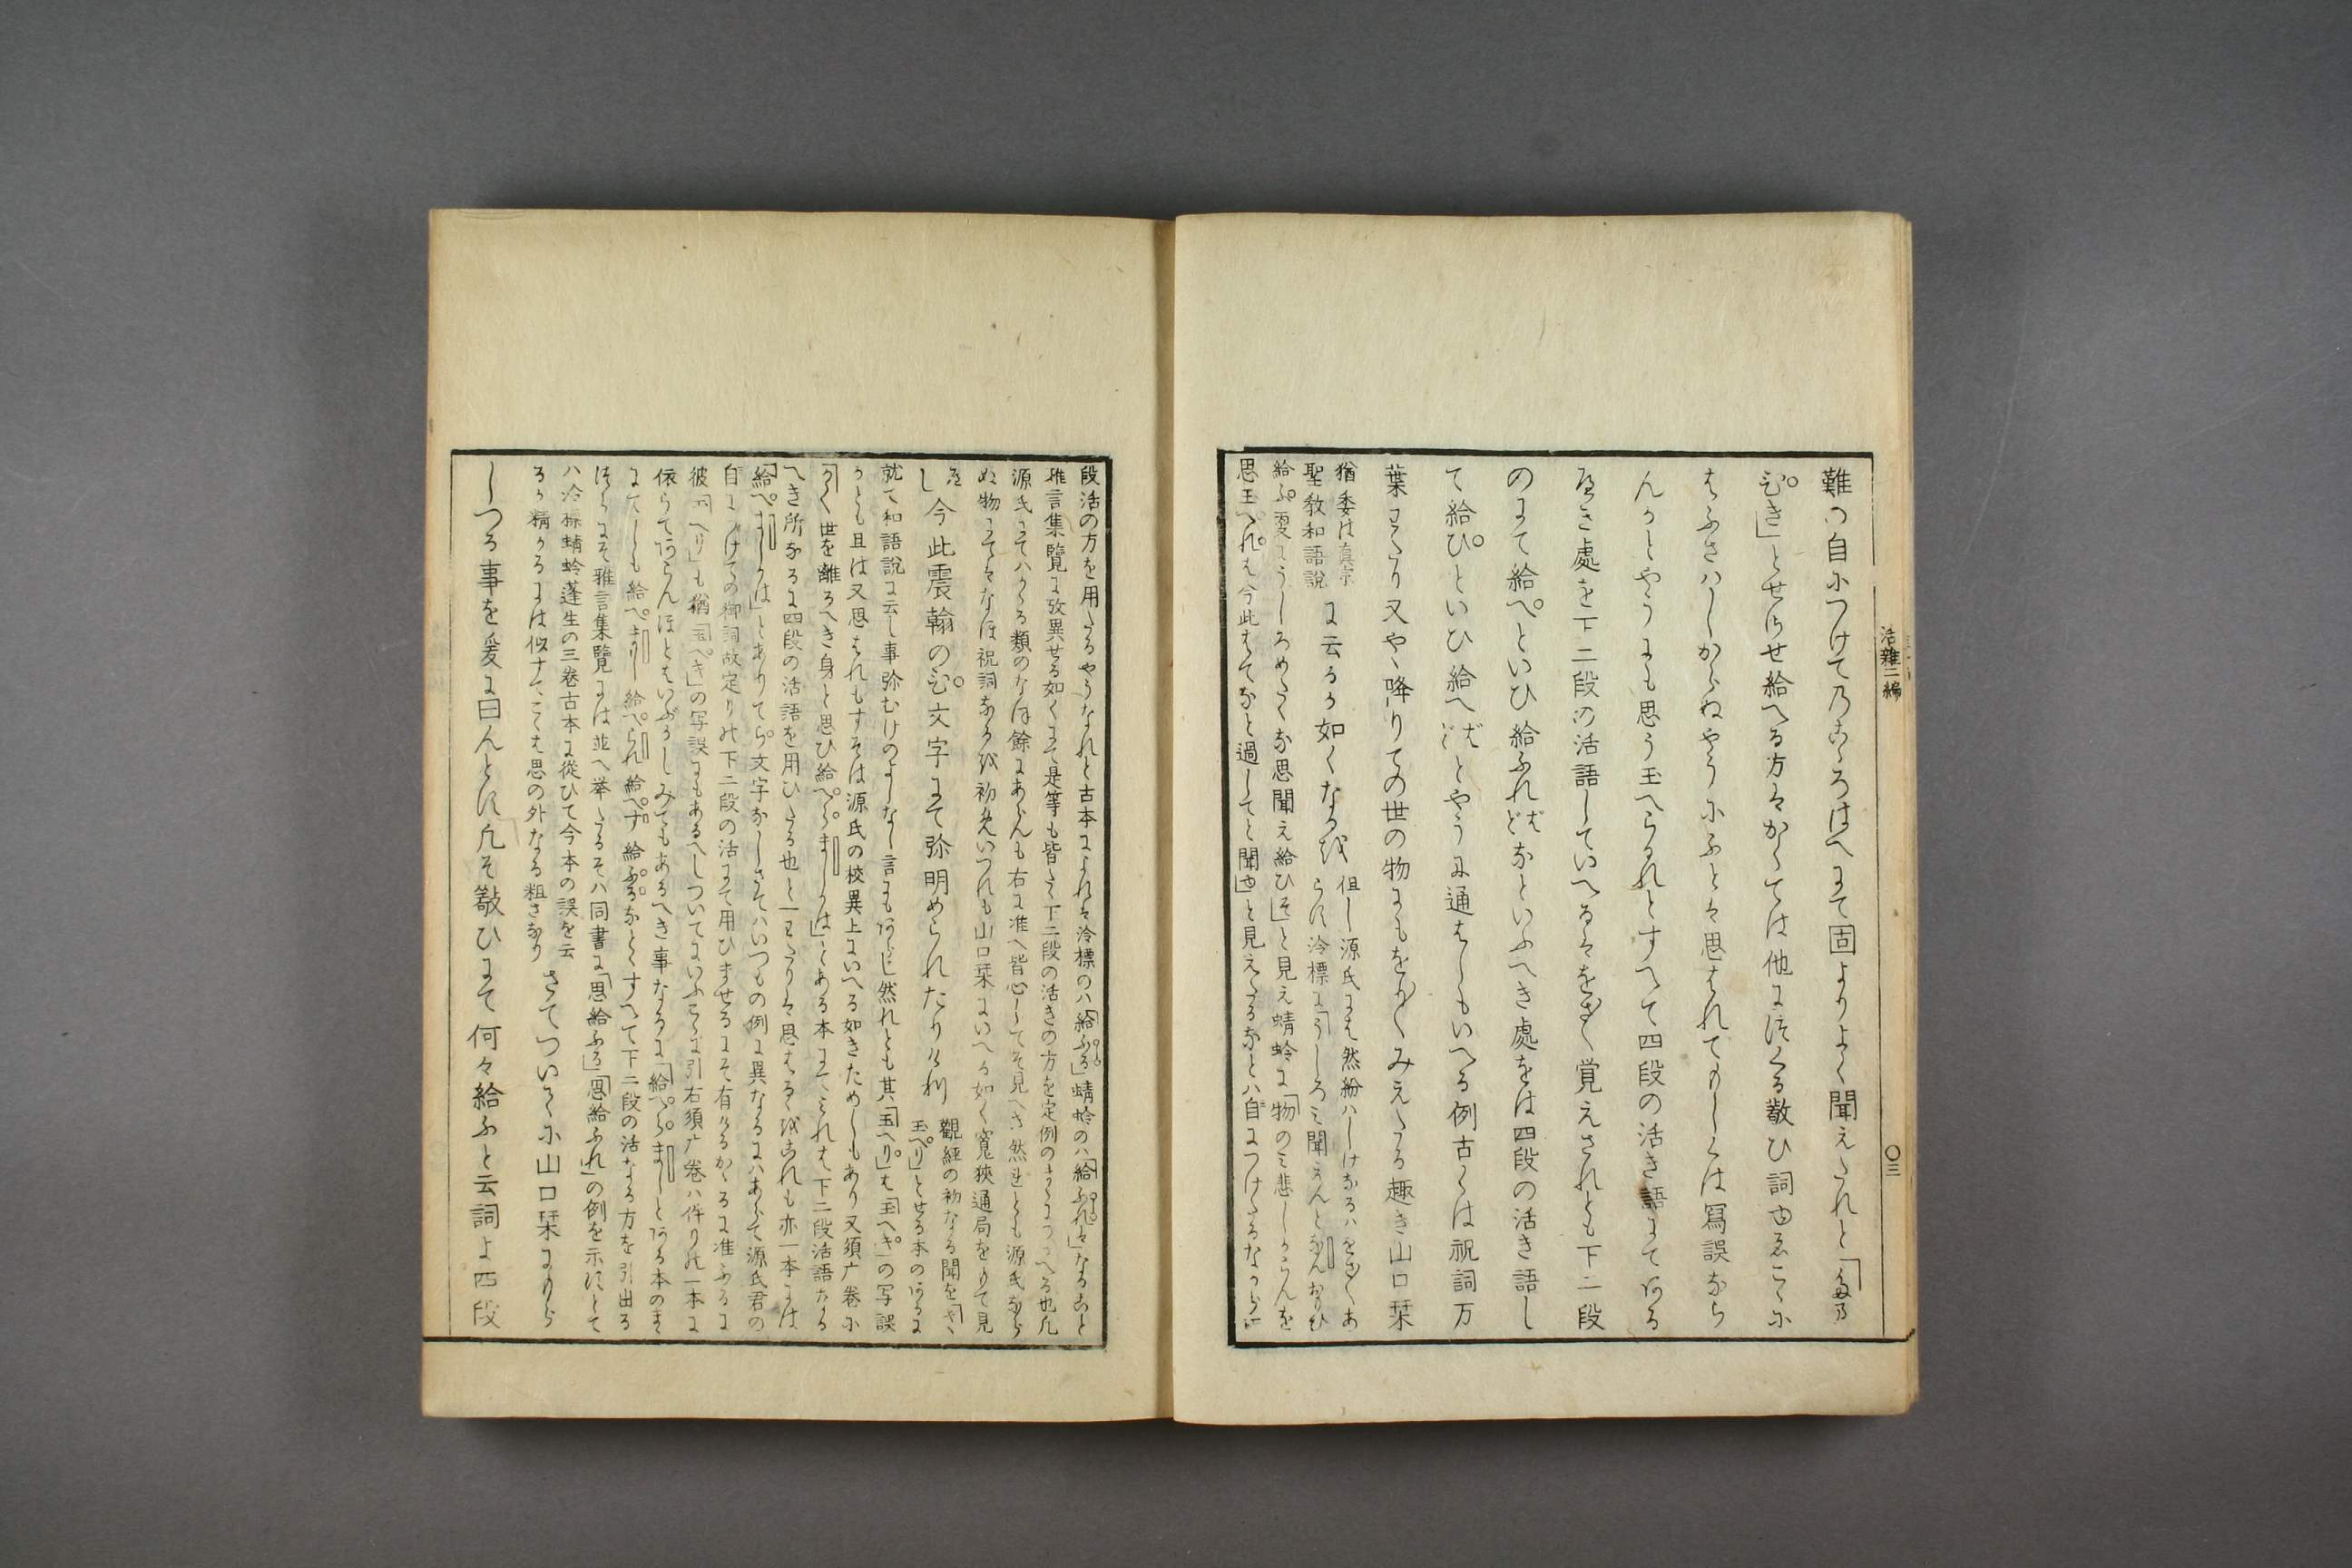 活雜三編
〇三
難の自につけて乃こゝろはへにて固よりよく聞えたれと「たま
ひき」とせらせ給へる方はかくては他にほくる敬ひ詞ゆゑこゝに
はふさハしからぬやうにふとは思はれてもしくは寫誤なら
んかとやうにも思う玉へらるれとすへて四段の活き語にてある
へき處を下二段の活語していへるはをさ〱覚えされとも下二段
のにて給へといひ給ふればどなといふへき處をは四段の活き語し
て給ひといひ給へばどとやうに通はしもいへる例古くは祝詞万
葉にわたり又やゝ降りての世の物にもをり〱みえたる趣き山口栞
猶委は真宗
聖教和語説
に云るか如くなるを
但し源氏には然紛ハしけなるハをさ〱あ
らす澪標に「うしろみ聞えんとなんおもひ
給ふ夏にうしろめたくな思聞え給ひそ」と見え蜻蛉に「物のミ悲しからんを
思玉へれは今此はてなと過してと聞ゆ」と見えたるなとハ自につけたるなからに
段活の方を用たるやうなれと古本によれは澪標のハ「給ふる」蜻蛉のハ「給ふれは」なること
雅言集覽に攷異せる如くにて是等も皆たゝ下二段の活きの方を定例のまゝにつかへる也凡
源氏にてハかゝる類のなほ餘にあらんも右に准へ皆心してそ見へき然れとも源氏なら
ぬ物にてはなほ祝詞なるを初めいつれも山口栞にいへる如く寬狹通局をもて見
へし
今此震翰のひ文字にて弥明められたりけれ
觀經の初なる聞を「やゝ
玉へり」とせる本のあるに
就て和語說に云し事弥むけのよしなし言にもあらし然れとも其「玉へり」は「玉へき」の写誤
かとも且は又思はれもすそは源氏の校異上にいへる如きためしもあり又須广卷に
「かく世を離るへき身と思ひ給へらましかは」とある本にてこれは下二段活語なる
へき所なるに四段の活語を用ひたる也と一わたりは思はるゝをこれも亦一本には
「給へましかは」とありてら文字なしさてハいつもの例に異なるにハあらて源氏君の
自につけての御詞故定りの下二段の活にて用ひませるにそ有けるかゝるに准ふるに
彼「玉へり」も猶「玉へき」の写誤にもあるへしついてにいふこゝに引右須广卷ハ件りの一本に
依らてあらんほとはいぶかしみてもあるへき事なるに「給へらまし」とある本のまゝ
にてしも給へまし給へられ給へす給ふるなとゝすへて下二段の活なる方を引出る
ほとにそ雅言集覽には並へ挙たるそハ同書に「思給ふる」「思給ふれ」の例を示すとて
ハ冷標蜻蛉蓬生の三卷古本に從ひて今本の誤を云
るか精かるには似すたゝこは思の外なる粗さなり
さてついてに山口栞にもら
しつる事を爰に曰んとす凡そ敬ひにて何々給ふと云詞よ四段